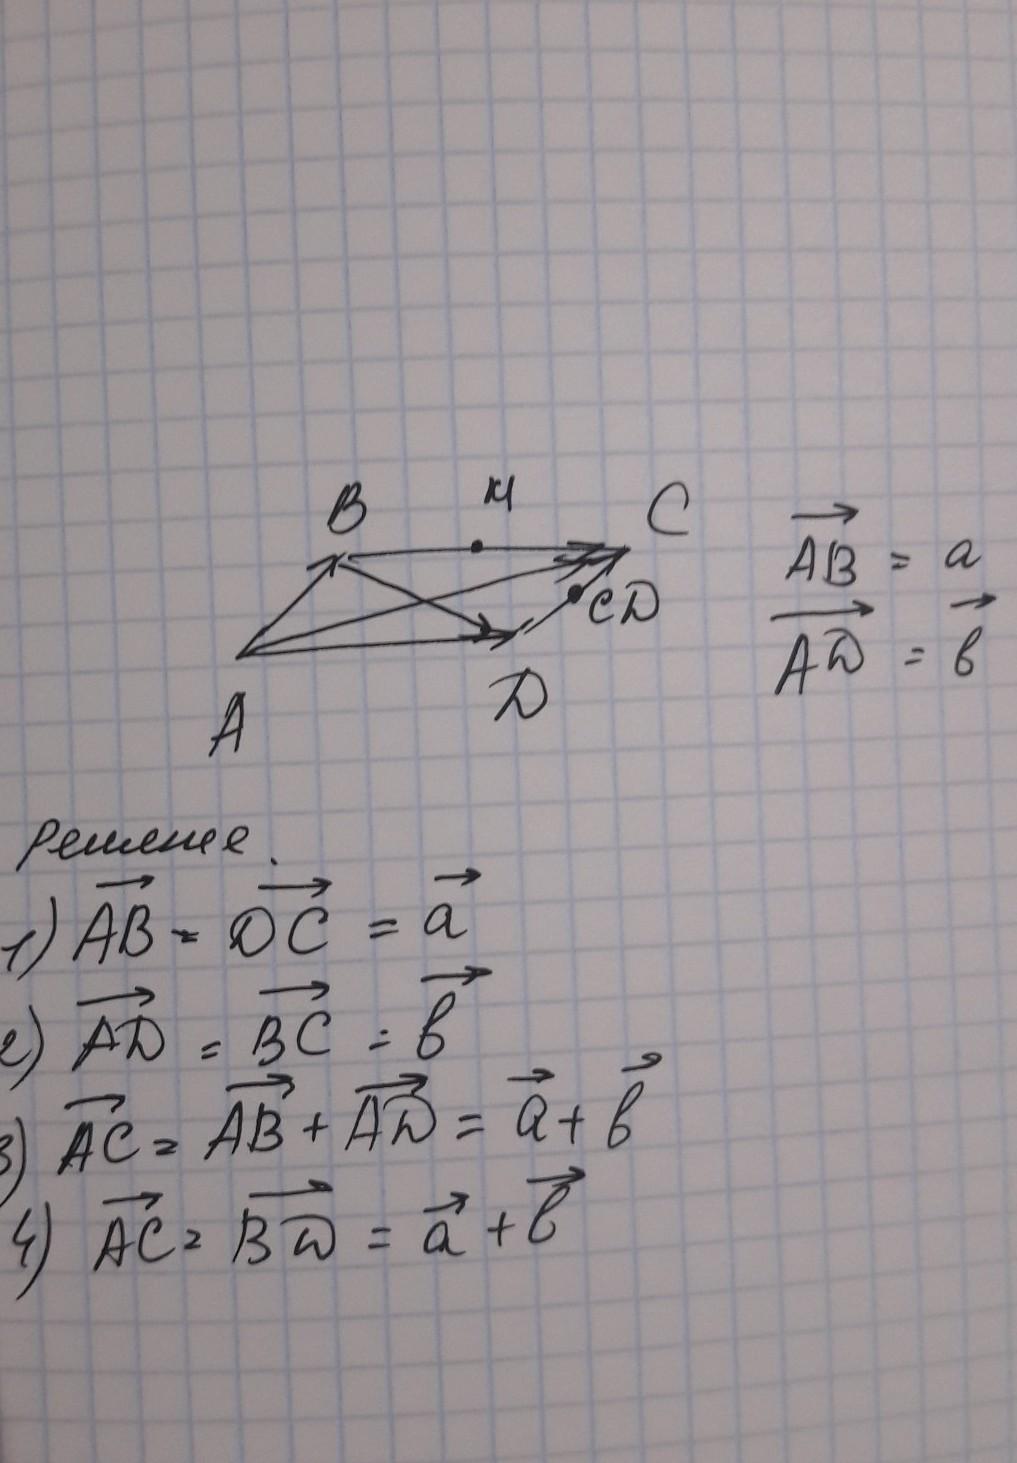 B M C
CD
A D
AB = a
AD = b
Решение.
1) AB = DC = a
2) AD = BC = b
3) AC = AB + AD = a + b
4) AC = BD = a + b